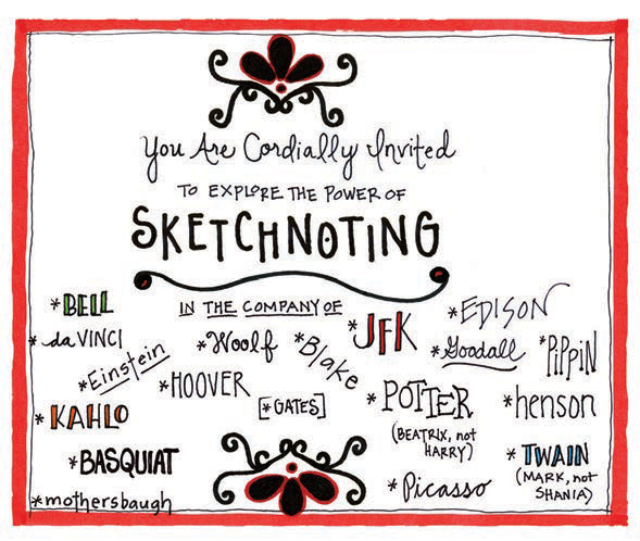 You Are Cordially Invited
TO EXPLORE THE POWER OF
SKETCHNOTING
IN THE COMPANY OF
*BELL
*da VINCI
*Einstein
*Woolf
*Blake
*JFK
*EDISON
*Goodall
*PiPPiN
*HOOVER
[*GATES]
*KAHLO
*POTTER
(BEATRIX, not
HARRY)
*henson
*BASQUIAT
*TWAIN
(MARK, not
SHANIA)
*Picasso
*mothersbaugh